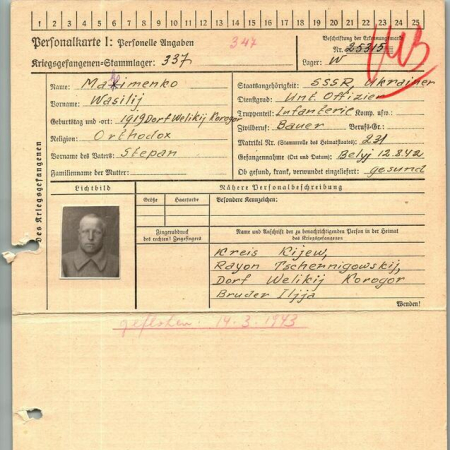 1 2 3 4 5 6 7 8 9 10 11 12 13 14 15 16 17 18 19 20 21 22 23 24 25
Personalkarte I: Personelle Angaben
347
Beschriftung der Erkennungsmarke
Nr. 25315
Kriegsgefangenen-Stammlager: 337
Lager: W
Des Kriegsgefangenen
Name: Maximenko
Vorname: Wasilij
Geburtstag und -ort: 1919 Dorf Welikij Korogor
Religion: Orthodox
Vorname des Vaters: Stepan
Familienname der Mutter:
Staatsangehörigkeit: SSSR Ukrainer
Dienstgrad: Unt. Offizier
Truppenteil: Infanterie Komp. usw.:
Zivilberuf: Bauer Berufs-Gr.:
Matrikel Nr. (Stammrolle des Heimatstaates): 231
Gefangennahme (Ort und Datum): Belyj 12.8.42
Ob gesund, krank, verwundet eingeliefert: gesund
Lichtbild
Nähere Personalbeschreibung
Größe
Haarfarbe
Besondere Kennzeichen:
Fingerabdruck
des rechten! Zeigefingers
Name und Anschrift der zu benachrichtigenden Person in der Heimat
des Kriegsgefangenen
Kreis Kijew,
Rayon Tschernigowskij,
Dorf Welikij Korogor
Bruder Iljja
Wenden!
14.3.1943